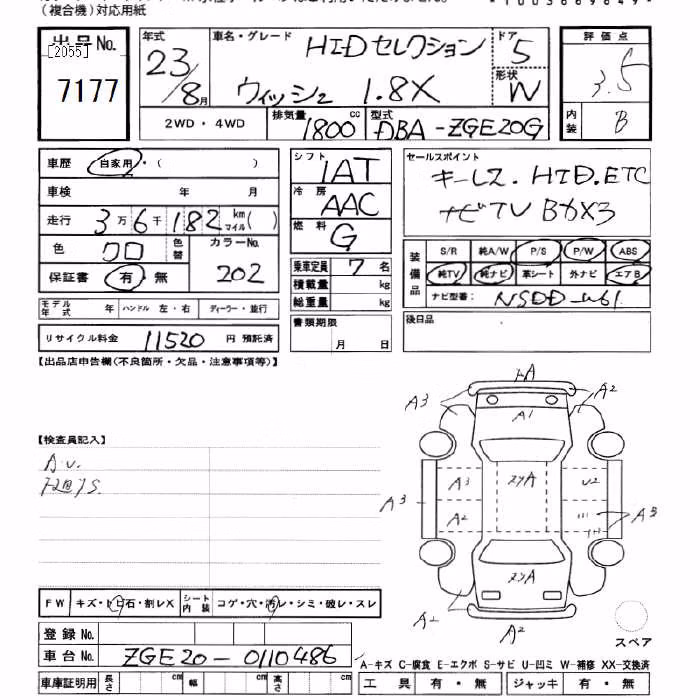 (複合機)対応用紙
出品No. [2055] 7177
年式 23/8月
車名・グレード HIDセレクション
ウィッシュ 1.8X
ドア 5
形状 W
評価点 3.5
内装 B
2WD・4WD
排気量 1800 cc
型式 DBA-ZGE20G
車歴 自家用・( )
車検 年 月
走行 3万6千182 km マイル( )
色 クロ 色替
カラーNo. 202
保証書 有・無
モデル年式 年 ハンドル 左・右 ディーラー・並行
リサイクル料金 11520 円 預託済
シフト IAT
冷房 AAC
燃料 G
乗車定員 7 名
積載量 kg
総重量 kg
書類期限 月 日
セールスポイント
キーレス. HID.ETC
ナビTV Bカメラ
装備品 S/R 純A/W P/S P/W ABS
純TV 純ナビ 革シート 外ナビ エアB
ナビ型番: NSDD-W61
後日品
【出品店申告欄(不良箇所・欠品・注意事項等)】
【検査員記入】
A.U.
A3 A A2
A1
A3 A2 A U2 A3 A3
A
A2 A2
スペア
FW キズ・ヒ石・割レX
シート内装 コゲ・穴・汚レ・シミ・破レ・スレ
登録No.
車台No. ZGE20-0110486
車庫証明用 長さ cm 幅 cm 高さ cm
A-キズ C-腐食 E-エクボ S-サビ U-凹ミ W-補修 XX-交換済
工具 有・無 ジャッキ 有・無